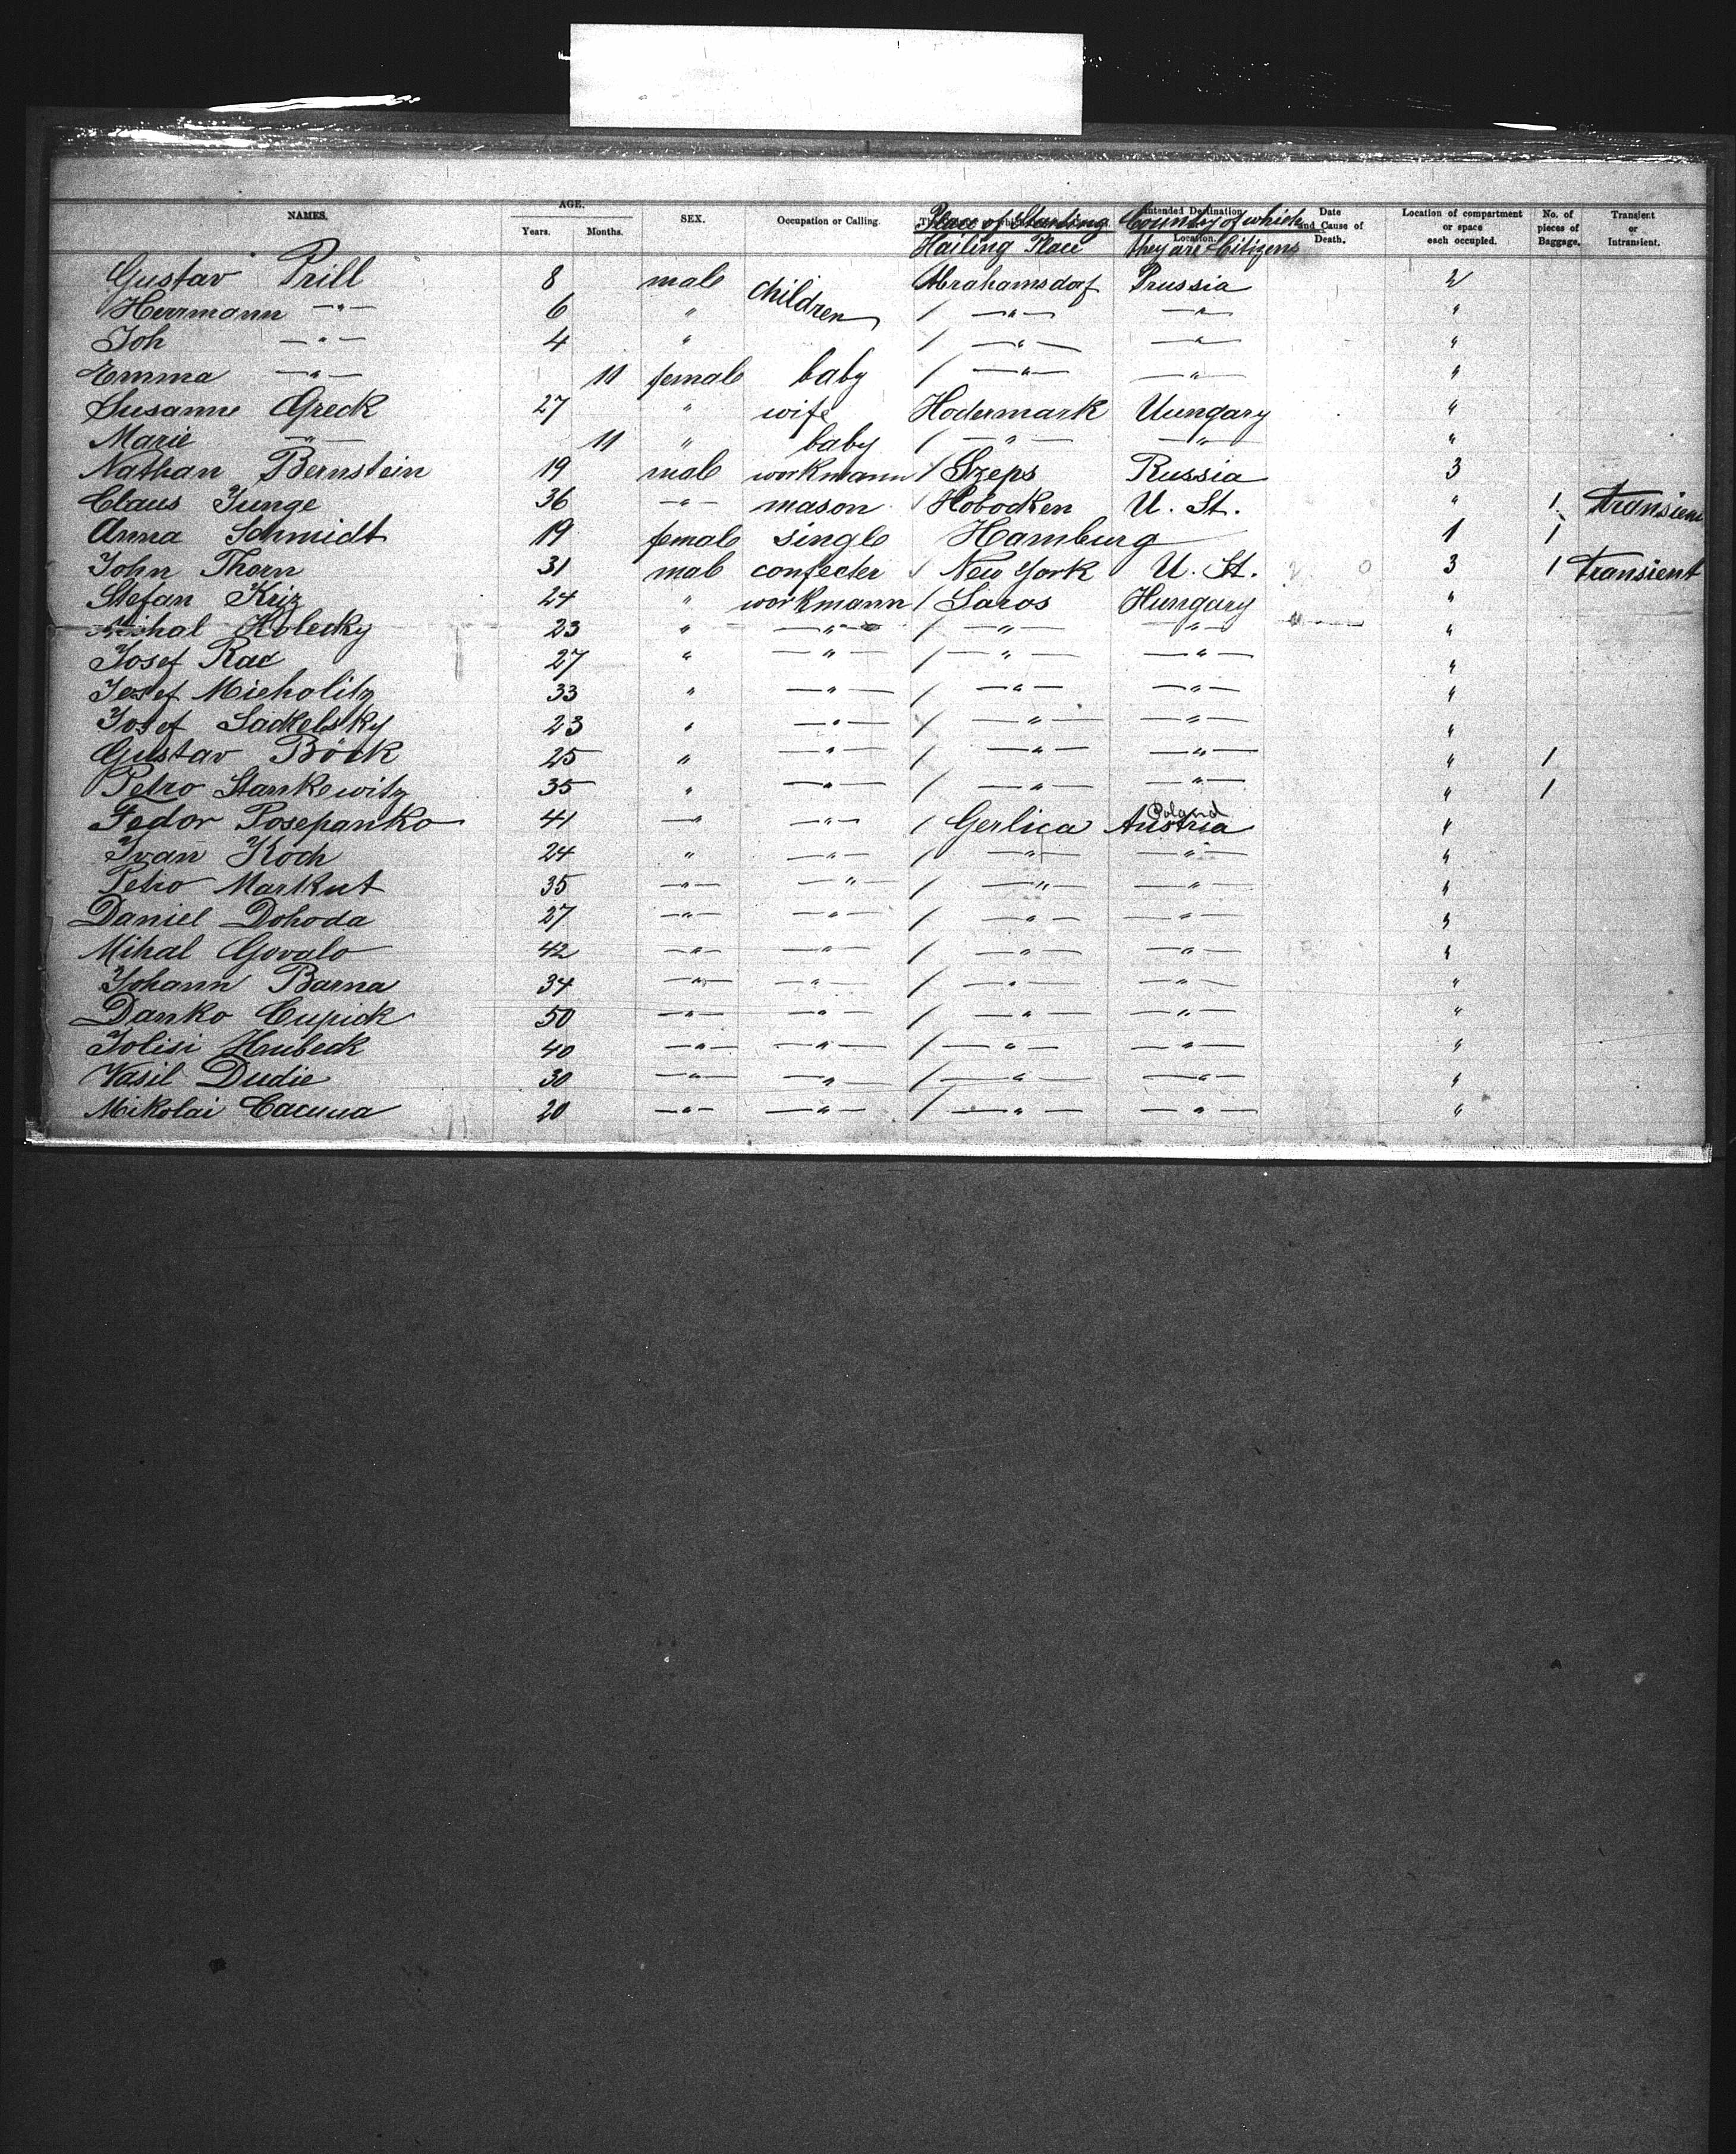 NAMES. AGE. Years. Months. SEX. Occupation or Calling. Place of Starting Hailing Place Intended Destination Location. Country of which they are Citizens Date and Cause of Death. Location of compartment or space each occupied. No. of pieces of Baggage. Transient or Intransient.
Gustav Prill 8 male children Abrahamsdorf Prussia 2
Herrmann -"- 6 " / -"- -"- "
Joh -"- 4 " / -"- -"- "
Emma -"- 11 female baby / -"- -"- "
Susanne Greck 27 " wife Hodermark Uungary "
Marie -"- 11 " baby / -"- -"- "
Nathan Bernstein 19 male workmann / Szeps Russia 3
Claus Junge 36 -"- mason / Hobocken U. St. " 1 transien
Anna Schmidt 19 female single Hamburg 1 1
John Thorn 31 male confecter / New York U. St. 3 1 transient
Stefan Kriz 24 " workmann / Saros Hungary "
Mihal Kolecky 23 " -"- / -"- -"- "
Josef Rac 27 " -"- / -"- -"- "
Josef Micholitz 33 " -"- / -"- -"- "
Josef Sackelsky 23 " -"- / -"- -"- "
Gustav Böck 25 " -"- / -"- -"- " 1
Petro Stankewitz 35 " -"- / -"- -"- " 1
Fedor Posepanko 41 -"- -"- / Gerlica Austria Poland "
Ivan Koch 24 " -"- / -"- -"- "
Petro Markut 35 -"- -"- / -"- -"- "
Daniel Dohoda 27 -"- -"- / -"- -"- "
Mihal Govalo 42 -"- -"- / -"- -"- "
Johann Barna 34 -"- -"- / -"- -"- "
Danko Cupick 50 -"- -"- / -"- -"- "
Jolisi Hubeck 40 -"- -"- / -"- -"- "
Vasil Dudie 30 -"- -"- / -"- -"- "
Mikolai Cacuua 20 -"- -"- / -"- -"- "